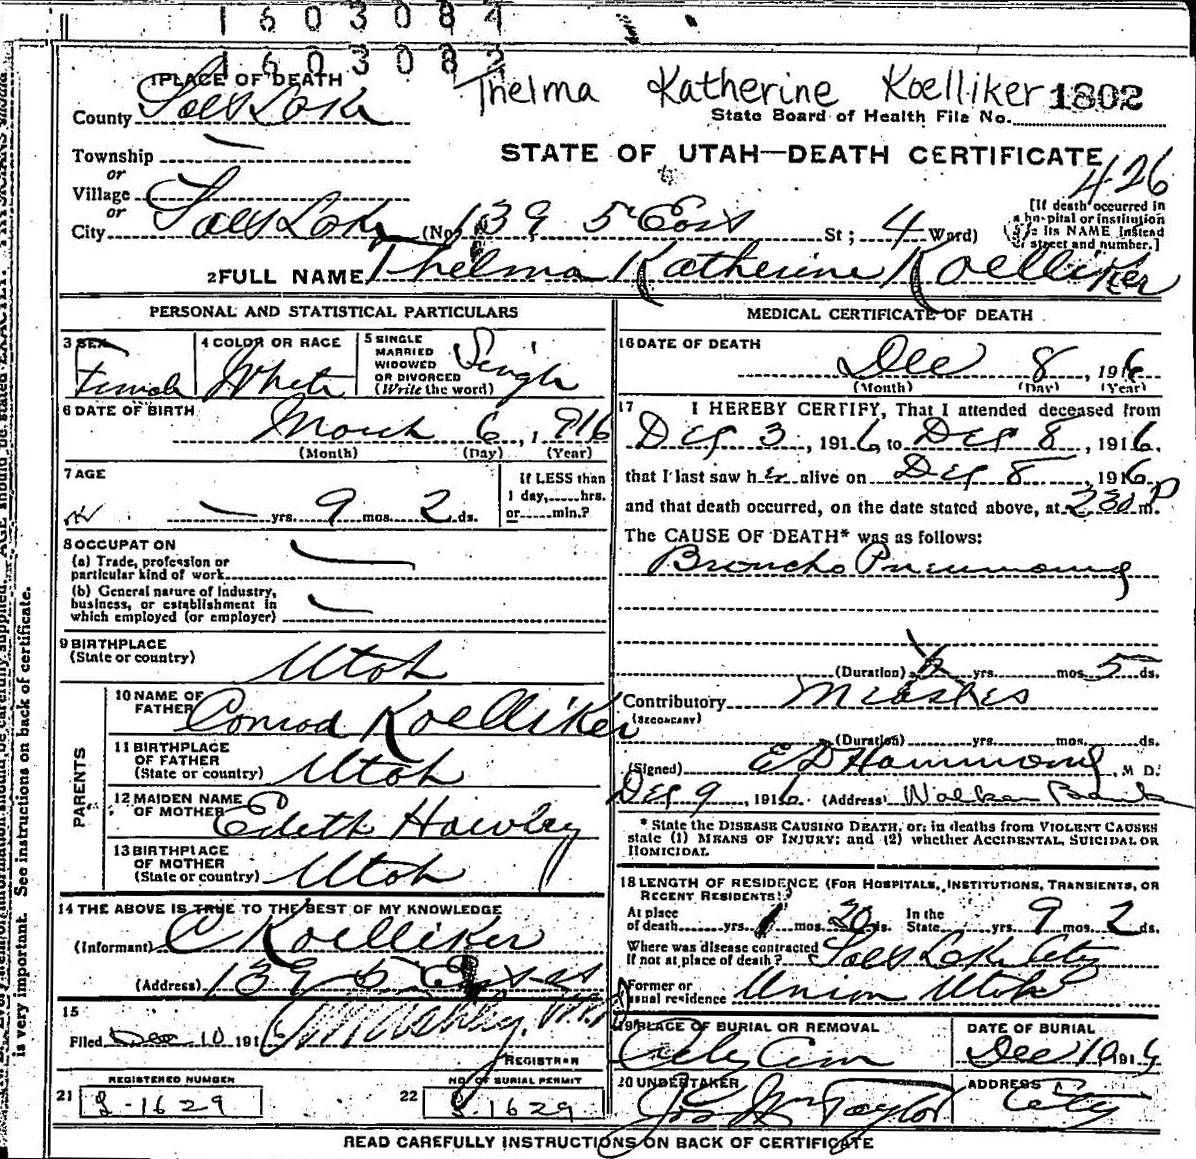 1 6 0 3 0 8 4
1 6 0 3 0 8 2
1 PLACE OF DEATH
Thelma Katherine Koelliker 1802
County Salt Lake
State Board of Health File No.
Township —
STATE OF UTAH—DEATH CERTIFICATE
or
Village
426
or
City Salt Lake (No. 139 5 East St; 4 Word)
[If death occurred in a hospital or institution its NAME instead street and number.]
2 FULL NAME Thelma Katherine Koelliker
PERSONAL AND STATISTICAL PARTICULARS
3 SEX Female
4 COLOR OR RACE White
5 SINGLE MARRIED WIDOWED OR DIVORCED (Write the word) Single
6 DATE OF BIRTH
March 6, 1 916
(Month) (Day) (Year)
7 AGE
— yrs. 9 mos. 2 ds.
If LESS than 1 day, hrs. or min.?
8 OCCUPATION
(a) Trade, profession or particular kind of work —
(b) General nature of Industry, business, or establishment in which employed (or employer) —
9 BIRTHPLACE (State or country) Utah
PARENTS
10 NAME OF FATHER Conrad Koelliker
11 BIRTHPLACE OF FATHER (State or country) Utah
12 MAIDEN NAME OF MOTHER Edeth Hawley
13 BIRTHPLACE OF MOTHER (State or country) Utah
14 THE ABOVE IS TRUE TO THE BEST OF MY KNOWLEDGE
(Informant) C Koelliker
(Address) 139 5 East
15
Filed Dec 10 191
REGISTRAR
REGISTERED NUMBER
21 L-1629
NO. OF BURIAL PERMIT
22 L-1629
MEDICAL CERTIFICATE OF DEATH
16 DATE OF DEATH
Dec 8, 1916
(Month) (Day) (Year)
17 I HEREBY CERTIFY, That I attended deceased from
Dec 3, 1916, to Dec 8, 1916,
that I last saw her alive on Dec 8, 1916
and that death occurred, on the date stated above, at 230 P m.
The CAUSE OF DEATH* was as follows:
Broncho Pneumonia
(Duration) yrs. mos. 5 ds.
Contributory Measles
(SECONDARY)
(Duration) yrs. mos. ds.
(Signed) E D Hammond, M D.
Dec 9, 1916 (Address) Walker Bank
* State the DISEASE CAUSING DEATH, or, in deaths from VIOLENT CAUSES
state (1) MEANS OF INJURY; and (2) whether ACCIDENTAL, SUICIDAL OR
HOMICIDAL.
18 LENGTH OF RESIDENCE (FOR HOSPITALS, INSTITUTIONS, TRANSIENTS, OR
RECENT RESIDENTS.)
At place of death yrs. 1 mos. 20 ds. In the State yrs. 9 mos. 2 ds.
Where was disease contracted If not at place of death? Salt Lake City
Former or usual residence Union Utah
19 PLACE OF BURIAL OR REMOVAL City Cem
DATE OF BURIAL Dec 10 1916
20 UNDERTAKER Jos Wm Taylor
ADDRESS City
READ CAREFULLY INSTRUCTIONS ON BACK OF CERTIFICATE
is very important. See instructions on back of certificate.